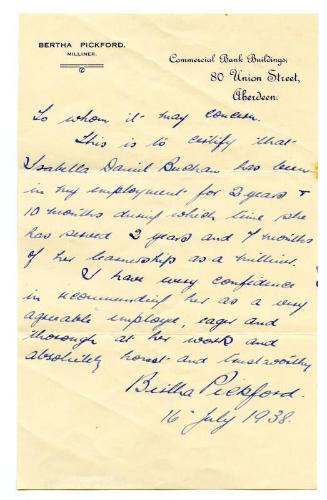 BERTHA PICKFORD.
MILLINER.
Commercial Bank Buildings,
80 Union Street,
Aberdeen.
To whom it may concern.
This is to certify that
Isabella Daniel Buchan has been
in my employment for 2 years &
10 months during which time she
has served 2 years and 7 months
of her learnership as a milliner.
I have every confidence
in recommending her as a very
agreeable employe, eager and
thorough at her work and
absolutely honest and trustworthy
Bertha Pickford.
16 July 1938.